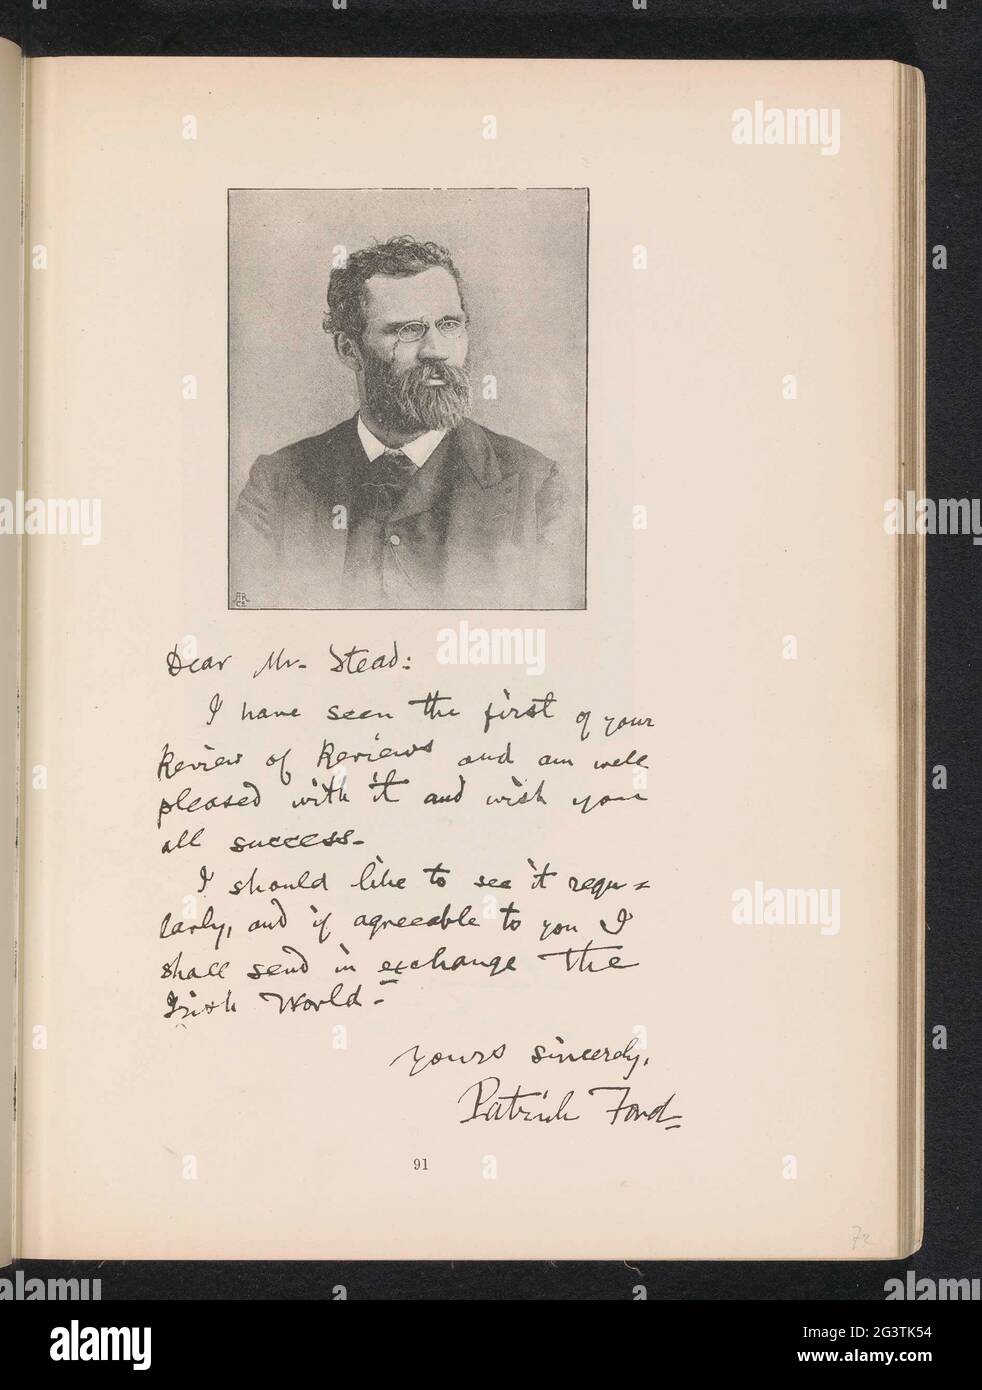 Dear Mr. Stead:
I have seen the first of your
Review of Reviews and am well
pleased with it and wish you
all success.
I should like to see it regu=
larly, and if agreeable to you I
shall send in exchange The
Irish World.
Yours sincerely,
Patrick Ford
91
72
alamy
Image ID: 2G3TK54
www.alamy.com